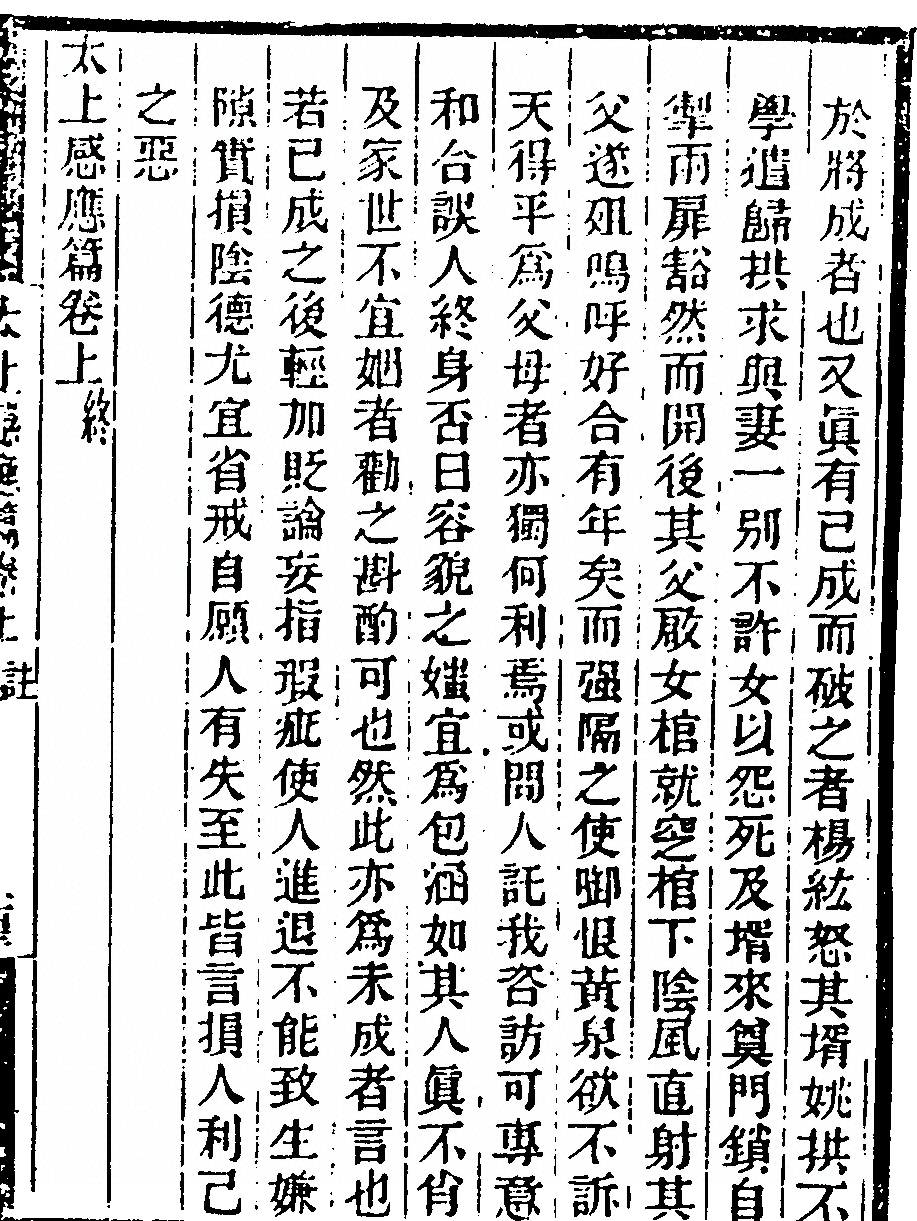 於將成者也又眞有已成而破之者楊紘怒其壻姚拱不
學遣歸拱求與妻一別不許女以怨死及壻來奠門鎖自
掣兩扉豁然而開後其父厰女棺就窆棺下陰風直射其
父遂殂嗚呼好合有年矣而强隔之使啣恨黃泉欲不訴
天得乎爲父母者亦獨何利焉或問人託我咨訪可專意
和合誤人終身否曰容貌之媸宜爲包涵如其人眞不肖
及家世不宜婣者勸之斟酌可也然此亦爲未成者言也
若已成之後輕加貶論妄指瑕疵使人進退不能致生嫌
隙實損陰德尤宜省戒自願人有失至此皆言損人利己
之惡
太上感應篇卷上終
太上感應篇卷上 註